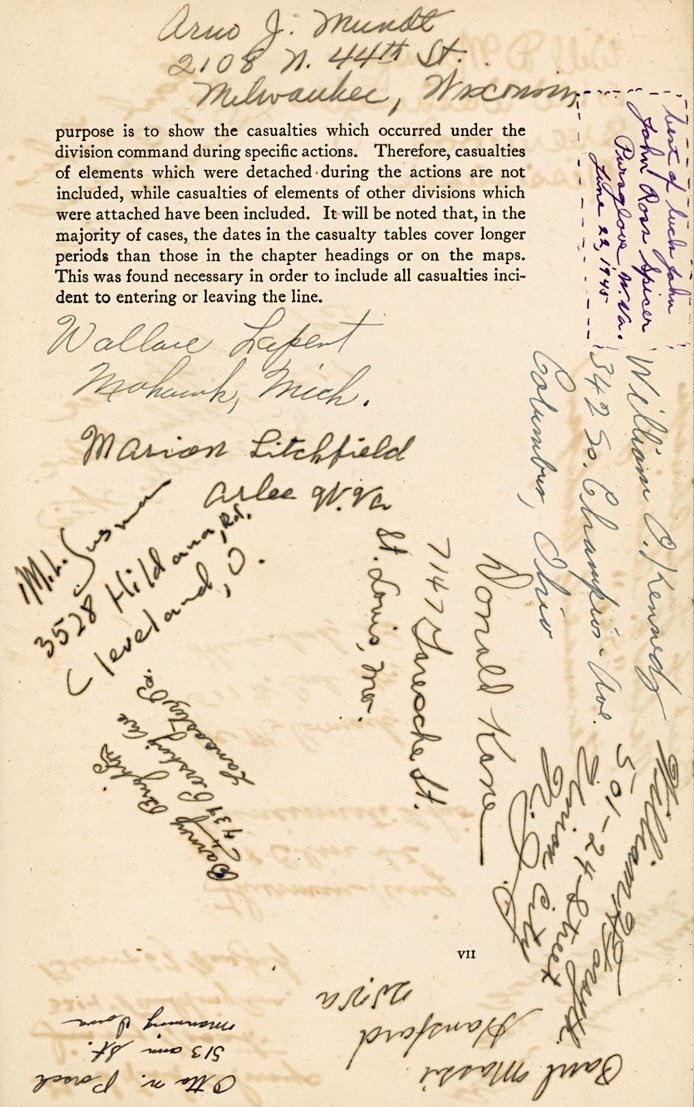 Arno J. Mundt
2108 N. 44th St.
Milwaukee, Wisconsin
purpose is to show the casualties which occurred under the
division command during specific actions. Therefore, casualties
of elements which were detached during the actions are not
included, while casualties of elements of other divisions which
were attached have been included. It will be noted that, in the
majority of cases, the dates in the casualty tables cover longer
periods than those in the chapter headings or on the maps.
This was found necessary in order to include all casualties inci-
dent to entering or leaving the line.
best of luck John
John Ross Spicer
Pursglove W. Va.
June 22, 1945
Wallace Lapent
Mohawk, Mich.
William C. Kennedy
342 So. Champion Ave.
Columbus, Ohio
Marion Litchfield
Arlee W. Va
M.L. Susman
3528 Hildana Rd.
Cleveland, O.
Donald Kane
7147 Lanoche St.
St. Louis, Mo.
Barney
439 Pershing Ave
Lancaster Pa.
William Forsyth
501-24 Street
Union City
N.J.
VII
Paul Massi
Hansford
W.Va
Otto N. Pasch
513 ann St.
manning Iowa